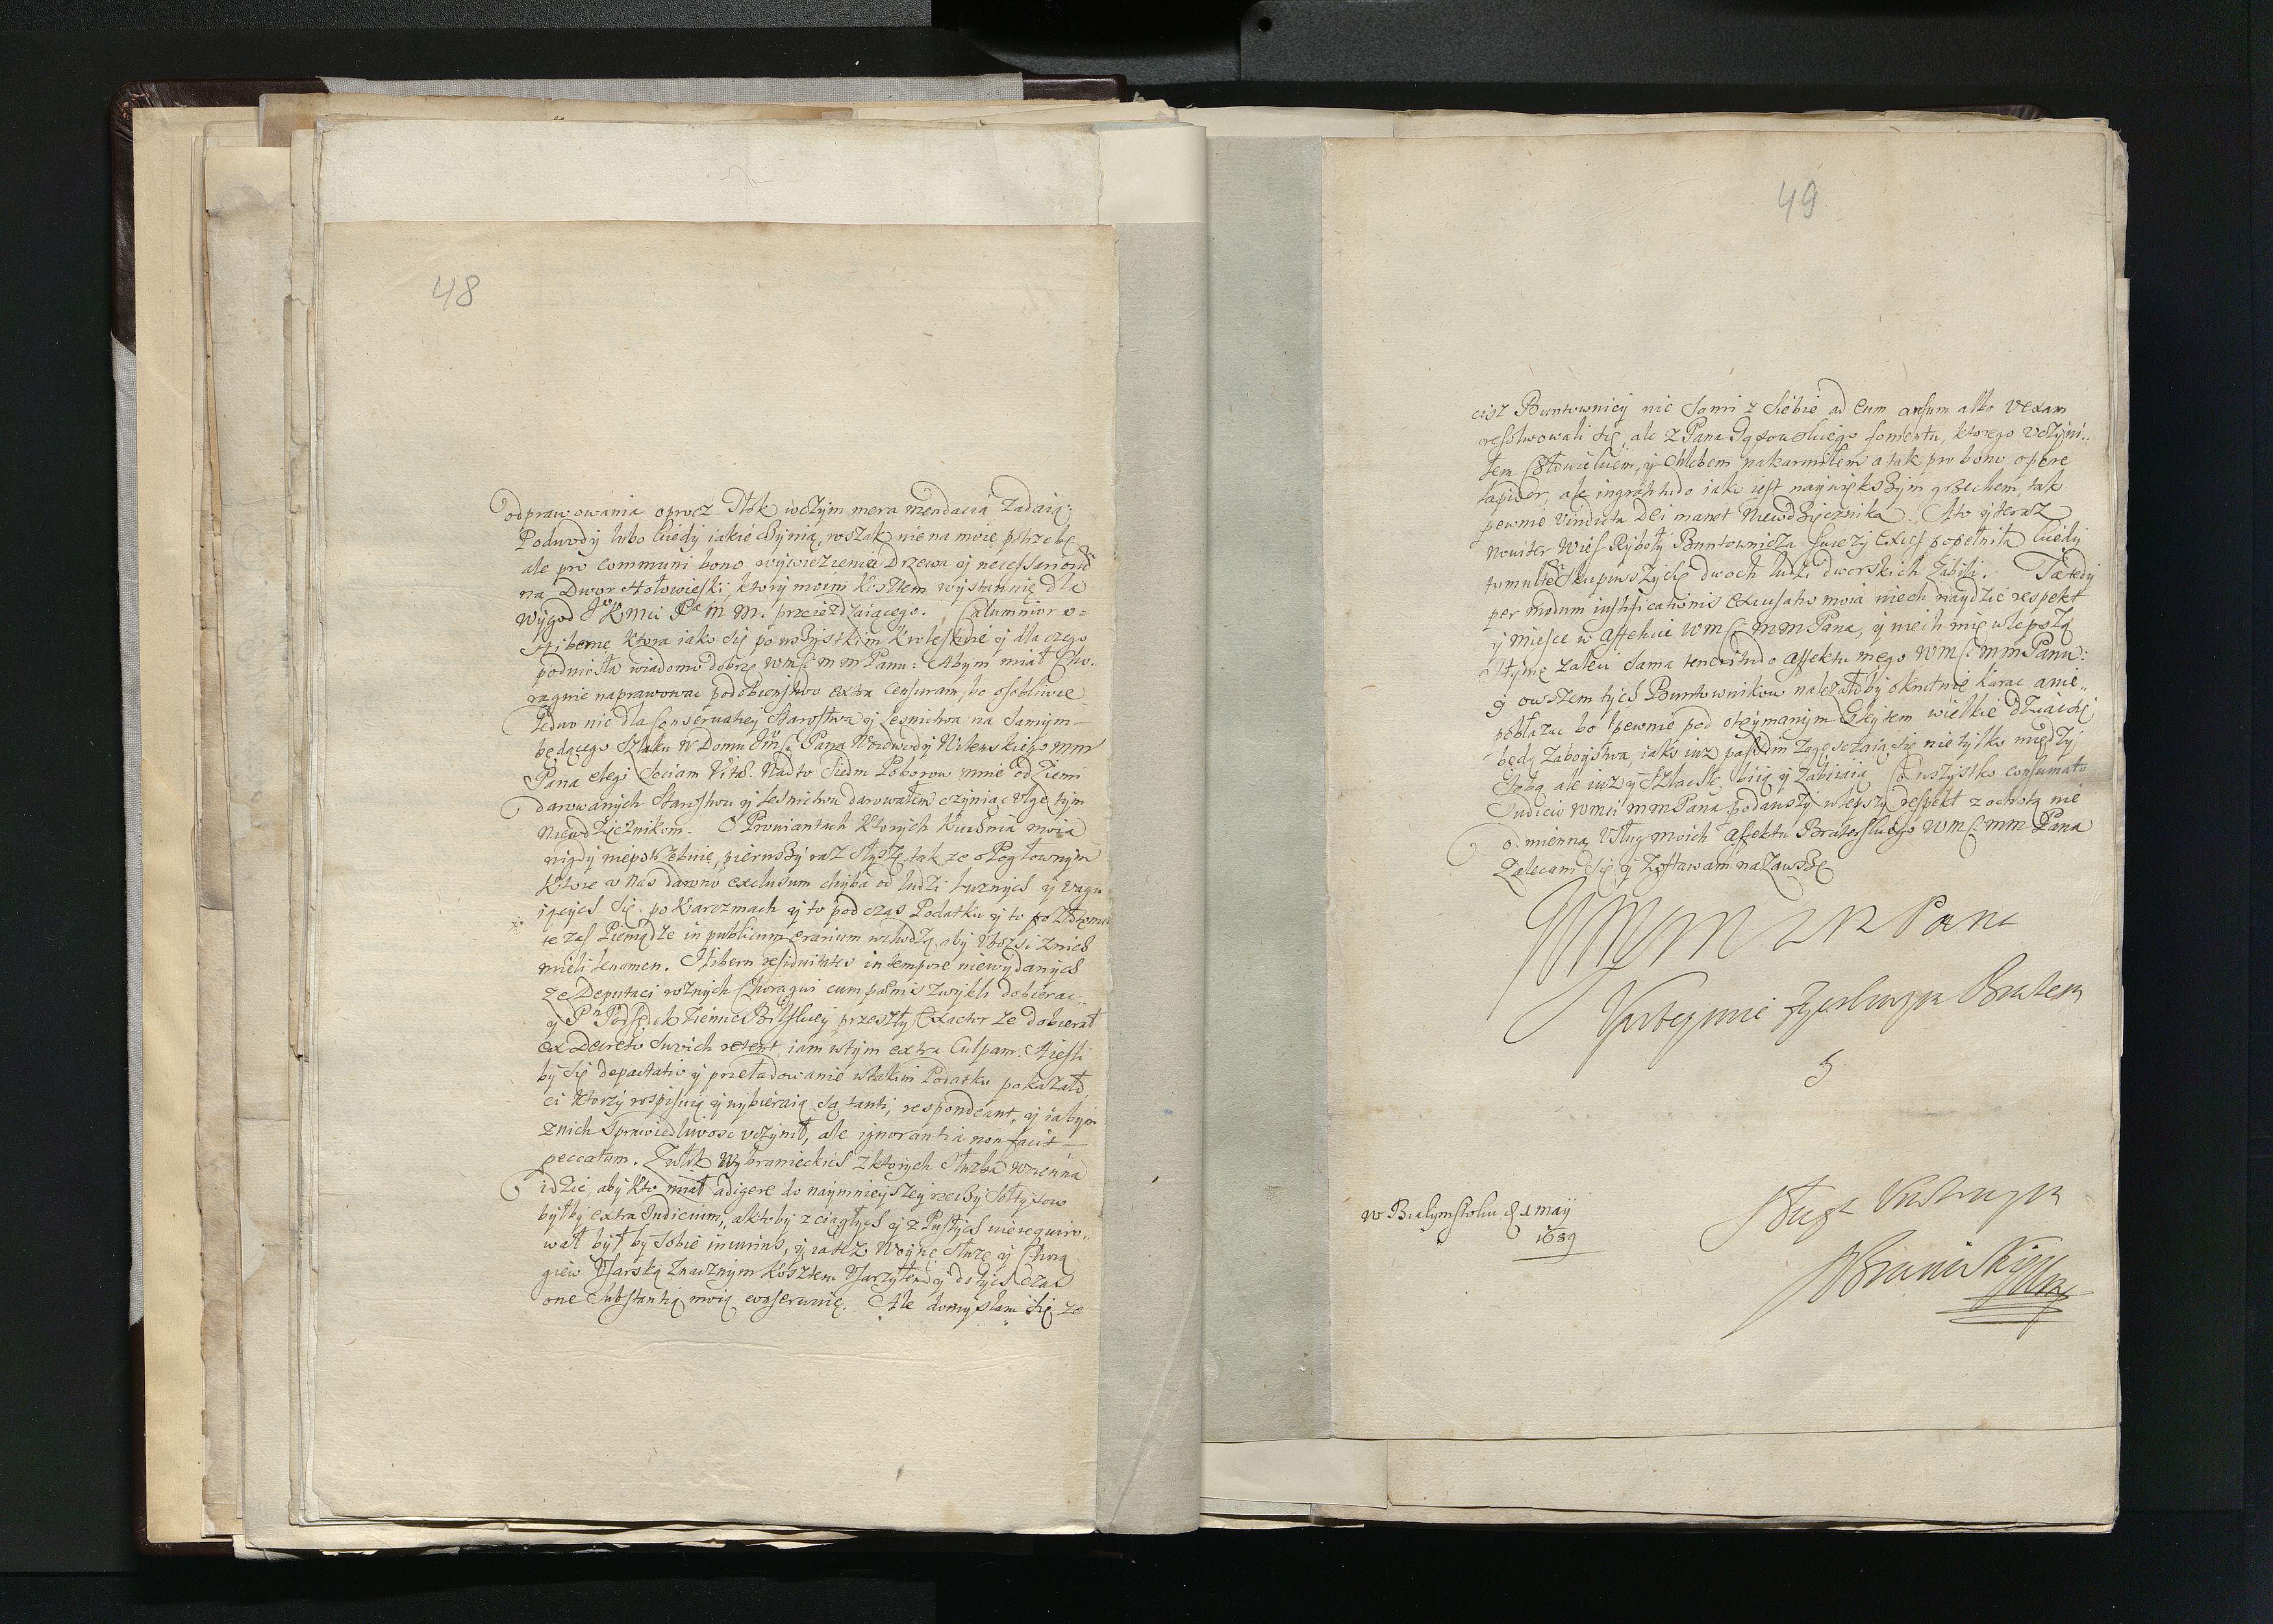 48
odprawowania oprocz Tłok wczym mera mendacia zadaią:
Podwody lubo kiedy iakie czynią, wszak nie na moię potrzebę
ale pro communi bono wywiezienia Drzewa y necessariorū
na Dwor Hołowieski, ktory moim kosztem wystawuię dla
wygod JoKMci Pa m M. przeieżdzaiącego. Calumnior o
Hibernę ktora iako się po wszystkim Krolestwie y dla czego
podniosła wiadomo dobrze WMsci mm Panu: Abym miał Cho-
rągwie naprawować podobieństwo extra censuram, bo osobliwie
ledwo nie dla conservatiey Starostwa y Lesnictwa na samym
będącego szlaku w Domu Jmsci Pana Woiewody Witewskiego mm
Pana elegi Sociam Vitæ. Nadto siedm Poborow mnie od Ziemi
darowanych Starostwu y Lesnictwu darowałem czyniąc vlgę tym
Niewdzięcznikom. O Prowiantach ktorych kuchnia moia
nigdy niepotrzebuie, pierwszy raz słyszę, tak ze o Pogłownym
ktore v nas dawno exclusum chyba od ludzi luznych y vagu
iących się po karczmach y to pod czas Podatku y to po złotemu
te zas Pieniądze in publicum ærarium wchodzą, aby vbozsi znich
mieli levamen. Hibern residuitates in tempore niewydanych
ze Deputaci roznych Chorągwi cum pœnis zwykli dobierac,
y Pn Podsędek Ziemie Bielskiey przeszły Exactor ze dobierał
ex Decreto swoich retent, iam wtym extra Culpam. A iesli
by się depactatio y przeładowanie w takim Podatku pokazało,
ci ktorzy rospisuią y wybieraią są tanti, respondeant, y iabym
znich sprawiedliwosc vczynił, ale ignorantia non facit
peccatum. Zwłok Wybranieckich z ktorych służba woienna
idzie, aby kto miał adigere do naymnieyszey rzeczy Sołtysow
byłby extra Iudicium, a ktoby z ciągłych y z Pustych nie requiro-
wał byłby sobie iniurius, y iatez Woynę służę y Chorą
giew Vsarską znacznym kosztem Vsarzyłem y dotych czas
onę substantią moią conserwuię. Ale domyslam się ze
49
cisz Buntownicy nie sami z siebie ad eum ausum albo vexam
resolwowali się, ale z Pana fomentu, ktorego vczyni-
łem Człowiekiem, y chlebem nakarmiłem a tak pro bono opere
lapidor, ale ingratitudo iako iest naywiększym grzechem, tak
pewnie vindicta Dei manet Niewdzięcznika. Ato y teraz
noviter Wieś Ryboły Buntownicza swiezy exces popełniła kiedy
tumultē skupiwszy się dwoch ludzi dworskich zabili. Ta tedy
per modum iustificationis excusatio moia niech naydzie respekt
y mieisce w Affekcie WMsci mm Pana, y niech mię w lepszą
estymę zaleci sama teneritudo affektu mego WMsci mm Panu:
y owszem tych Buntownikow nalezałoby okrutnie karac a nie
pobłazac bo pewnie pod otrzymanym Glejtem wielkie dziać się
będą zaboystwa, iako iuz passim zagęszczaią się nie tylko między
sobą ale iuz y szlachtę biią y zabiiaią. Co wszystko consumato
Iudicio WMsci mm Pana podawszy w lepszy respekt z ochotą nie
odmienną vsług moich affektu Braterskiego WMsci mm Pana
zalecam się y zostawam na zawsze
WM M M Pana
Vprzeymie Zyczliwym Bratem
y
Sługą Vnizonym
w Białymstoku d 1 may
1689
Branicki